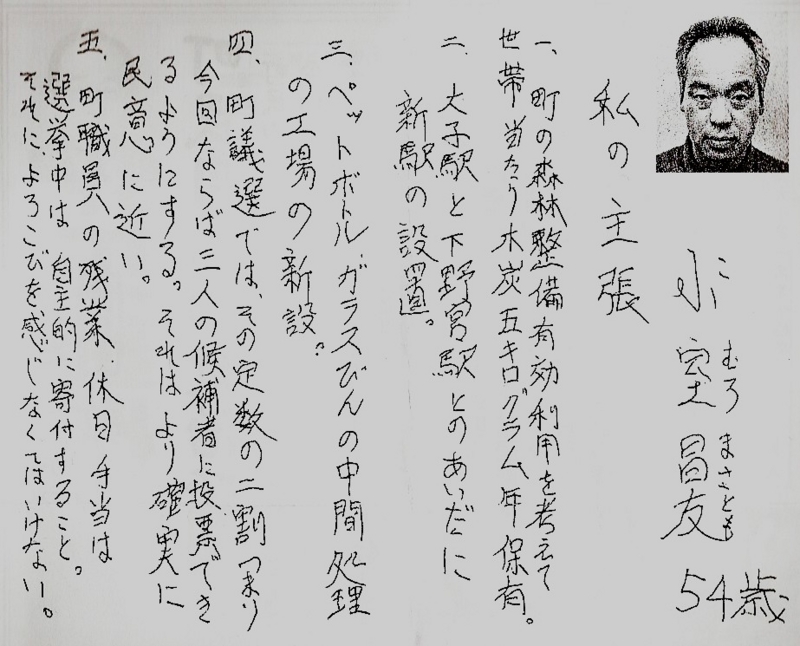 こ むろ まさとも
小室昌友 54歳
私の主張
一、町の森林整備有効利用を考えて
世帯当たり木炭五キログラム年保有。
二、大子駅と下野宮駅とのあいだに
新駅の設置。
三、ペットボトル、ガラスびんの中間処理
の工場の新設。
四、町議選では、その定数の二割つまり
今回ならば三人の候補者に投票でき
るようにする。それはより確実に
民意に近い。
五、町職員の残業、休日手当は
選挙中は自主的に寄付すること。
それに、よろこびを感じなくてはいけない。